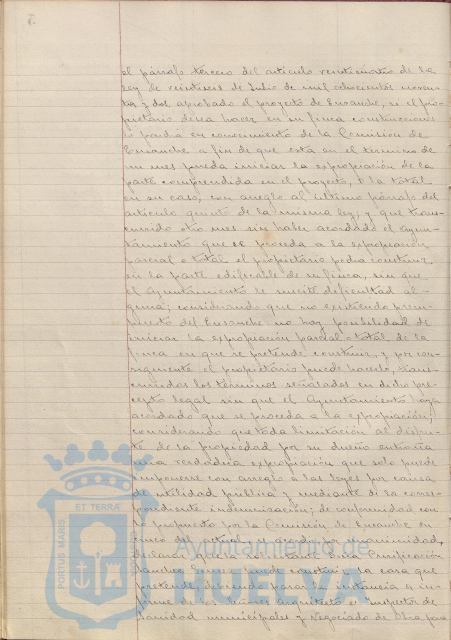 el párrafo tercero del articulo veinticuatro de la
ley de veintiseis de Julio de mil ochocientos noven-
ta y dos aprobado el proyecto de Ensanche, si el pro-
pietario desea hacer en su finca construcciones
lo pondrá en conocimiento de la Comision de
Ensanche a fin de que esta en el termino de
un mes pueda iniciar la expropiación de la
parte comprendida en el proyecto, o la total
en su caso, con arreglo al último párrafo del
articulo quinto de la misma ley; y que trans-
currido otro mes sin haber acordado el ayun-
tamiento que se proceda a la expropiación
parcial o total el propietario podra construir
en la parte edificable de su finca, sin que
el Ayuntamiento le suscite dificultad al-
guna; considerando que no existiendo presu-
puesto del Ensanche no hay posibilidad de
iniciar la expropiación parcial o total de la
finca en que se pretende construir, y por con-
siguiente el propietario puede hacerlo, trans-
curridos los términos señalados en dicho pre-
cepto legal sin que el Ayuntamiento haya
acordado que se proceda a la expropiación;
considerando que toda limitación al disfru-
te de la propiedad por su dueño entraña
una verdadera expropiación que solo puede
imponerse con arreglo a las leyes por causa
de utilidad publica y mediante la corres-
pondiente indemnización; de conformidad con
lo propuesto por la Comisión de Ensanche en
cinco del actual, se acordó por unanimidad,
declarar que el solicitante
Sanchez puede construir la casa que
pretende, debiendo pasar la instancia a in-
forme de los Señores Arquitecto e Inspector de
Sanidad municipales y Negociado de Obras para
ET TERRA
PORTUS MARIS
Ayuntamiento de
HUELVA